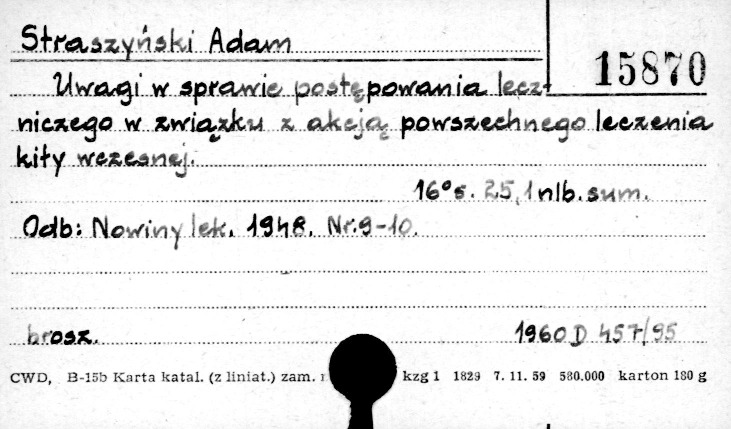 Straszyński Adam
15870
Uwagi w sprawie postępowania lecz-
niczego w związku z akcją powszechnego leczenia
kiły wczesnej.
16° s. 25, 1 nlb. sum.
Odb: Nowiny lek. 1948. Nr. 9-10.
brosz. 1960 D 457/95
CWD, B-15b Karta katal. (z liniat.) zam. kzg 1 1829 7. 11. 59 580.000 karton 180 g